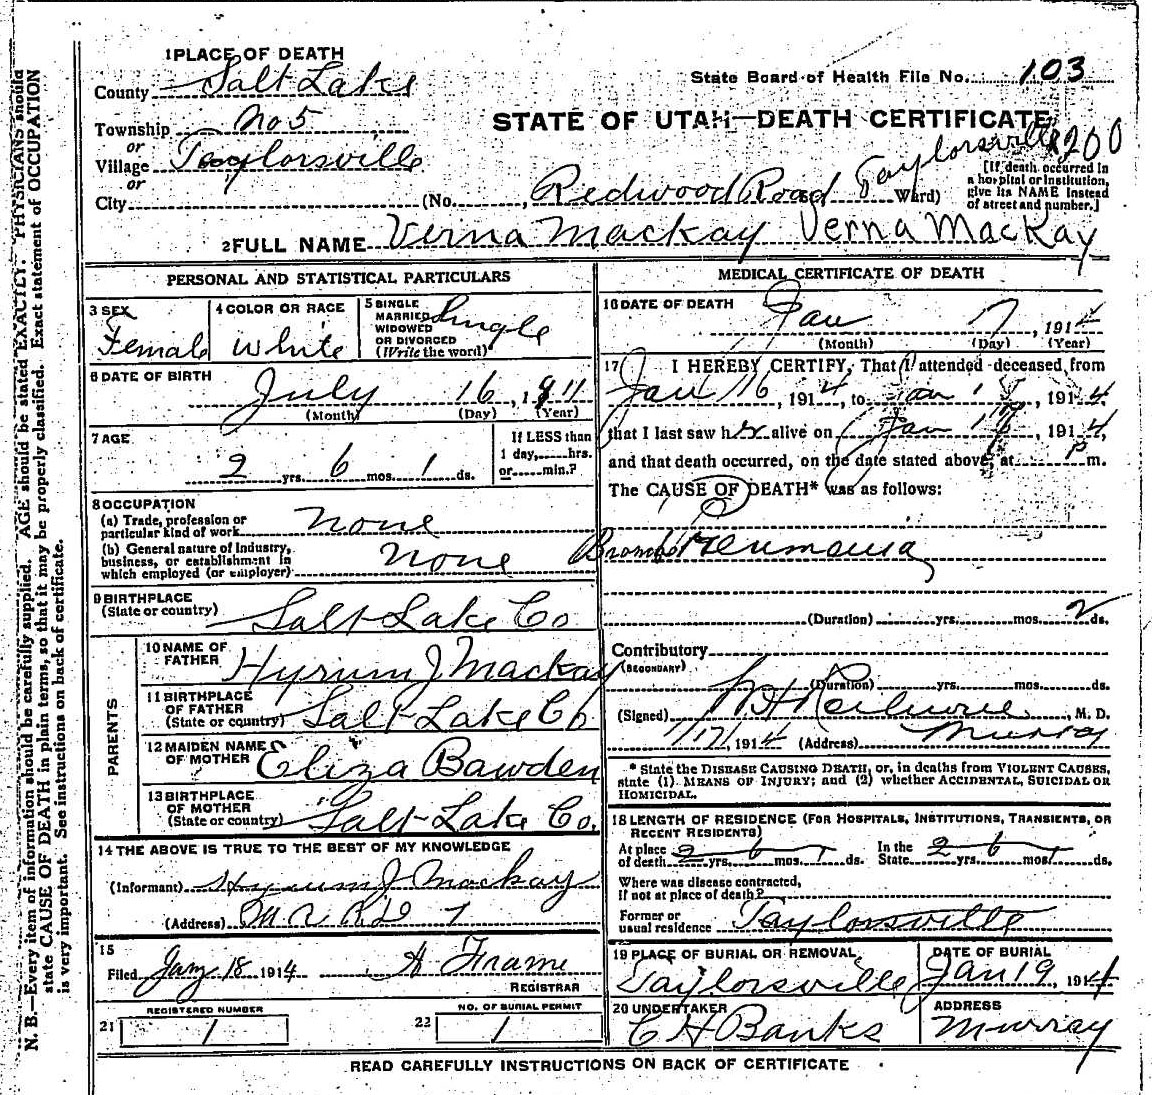 1 PLACE OF DEATH
County Salt Lake
State Board of Health File No. 103
Township No 5
or
STATE OF UTAH—DEATH CERTIFICATE
Village Taylorsville
or
City (No. , Redwood Road Taylorsville Ward) 200
[If death occurred in
a hospital or institution,
give its NAME instead
of street and number.]
2 FULL NAME Verna Mackay Verna MacKay
PERSONAL AND STATISTICAL PARTICULARS
3 SEX
Female
4 COLOR OR RACE
White
5 SINGLE
MARRIED
WIDOWED
OR DIVORCED
(Write the word)
Single
6 DATE OF BIRTH
July 16, 1911
(Month) (Day) (Year)
7 AGE
2 yrs. 6 mos. 1 ds.
If LESS than
1 day, hrs.
or min.?
8 OCCUPATION
(a) Trade, profession or
particular kind of work none
(b) General nature of industry,
business, or establishment in
which employed (or employer) none
9 BIRTHPLACE
(State or country) Salt Lake Co
PARENTS
10 NAME OF
FATHER Hyrum J Mackay
11 BIRTHPLACE
OF FATHER
(State or country) Salt Lake Co
12 MAIDEN NAME
OF MOTHER Eliza Bawden
13 BIRTHPLACE
OF MOTHER
(State or country) Salt Lake Co.
14 THE ABOVE IS TRUE TO THE BEST OF MY KNOWLEDGE
(Informant) Hyrum J Mackay
(Address)
15
Filed Jany 18 1914 A Frame
REGISTRAR
21 REGISTERED NUMBER
1
22 NO. OF BURIAL PERMIT
1
MEDICAL CERTIFICATE OF DEATH
16 DATE OF DEATH
Jan 7, 1914
(Month) (Day) (Year)
17 I HEREBY CERTIFY, That I attended deceased from
Jan 16, 1914, to Jan, 1914
that I last saw her alive on Jan, 1914,
and that death occurred, on the date stated above, at P m.
The CAUSE OF DEATH* was as follows:
Broncho Pneumonia
(Duration) yrs. mos. 2 ds.
Contributory
(SECONDARY)
(Duration) yrs. mos. ds.
(Signed) , M. D.
1/17/1914 (Address) Murray
* State the DISEASE CAUSING DEATH, or, in deaths from VIOLENT CAUSES,
state (1) MEANS OF INJURY; and (2) whether ACCIDENTAL, SUICIDAL OR
HOMICIDAL.
18 LENGTH OF RESIDENCE (FOR HOSPITALS, INSTITUTIONS, TRANSIENTS, OR
RECENT RESIDENTS)
At place
of death 2 yrs. 6 mos. 1 ds.
In the
State 2 yrs. 6 mos. 1 ds.
Where was disease contracted,
if not at place of death?
Former or
usual residence Taylorsville
19 PLACE OF BURIAL OR REMOVAL
Taylorsville
DATE OF BURIAL
Jan 19, 1914
20 UNDERTAKER
C H Banks
ADDRESS
Murray
READ CAREFULLY INSTRUCTIONS ON BACK OF CERTIFICATE
N. B.—Every item of information should be carefully supplied. AGE should be stated EXACTLY. PHYSICIANS should
state CAUSE OF DEATH in plain terms, so that it may be properly classified. Exact statement of OCCUPATION
is very important. See instructions on back of certificate.